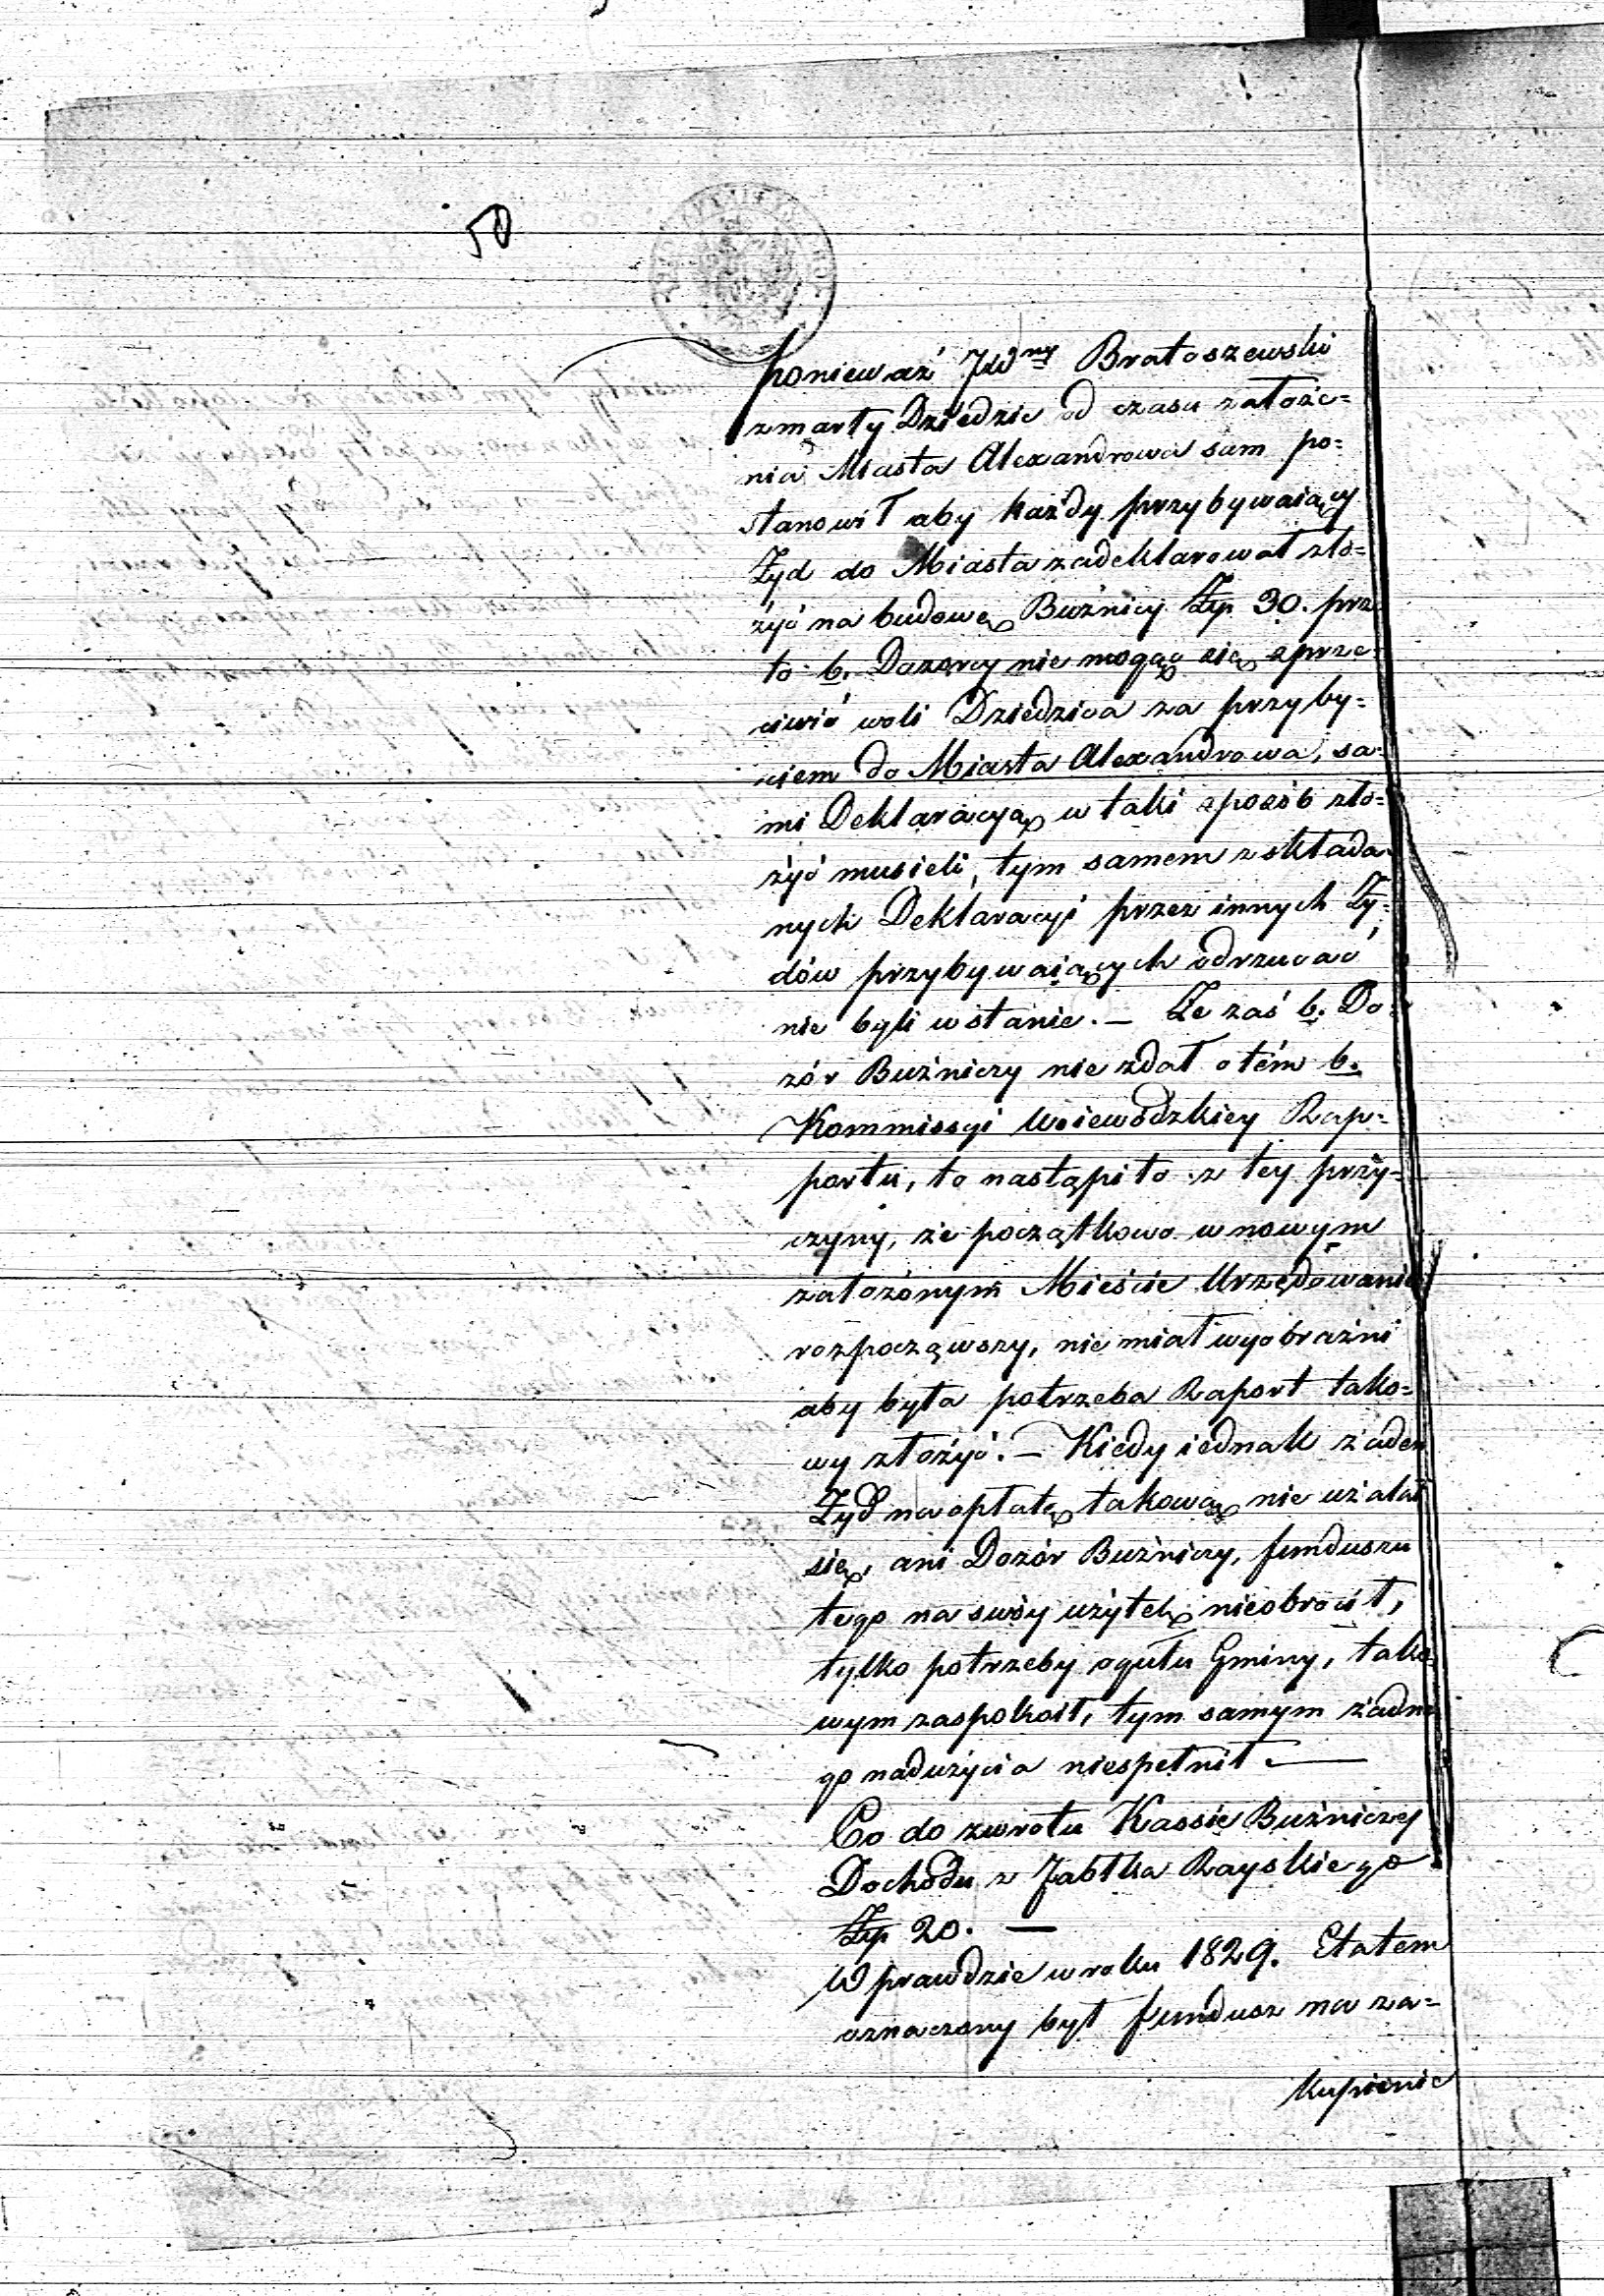 50
ponieważ JW<sup>ny</sup> Bratoszewski
zmarły Dziedzic od czasu założe=
nia Miasta Alexandrowa sam po=
stanowił aby każdy przybywaiący
Żyd do Miasta zadeklarował zło=
żyć na budowę Bużnicy Złp 30. prze
to b. Dozorcy nie mogąc się sprze=
ciwić woli Dziedzica za przyby=
ciem do Miasta Alexandrowa, sa=
mi Deklaracyą w taki sposób zło=
żyć musieli, tym samem zskłada=
nych Deklaracyi przez innych Ży=
dów przybywaiących odrzucać
nie byli wstanie. — Że zaś b. Do=
zór Bużniczy nie zdał o tém b.
Kommissyi Woiewódzkiey Rap=
portu, to nastąpiło z tey przy=
czyny, że początkowo w nowym
założonym Mieście Urzędowanie
rozpocząwszy, nie miał wyobraźni
aby była potrzeba Raport tako=
wy złożyć. — Kiedy iednak żaden
Żyd na opłatę takową nie użalał
się, ani Dozór Bużniczy, funduszu
tego na swóy użytek nieobrócił,
tylko potrzeby ogułu Gminy, tako=
wym zaspokoił, tym samym żadne
go nadużycia niespełnił —
Co do zwrotu Kassie Bużniczey
Dochodu z Jabłka Rayskiego
Złp 20. —
Wprawdzie w roku 1829. Etatem
oznaczony był fundusz na za=
kupienie